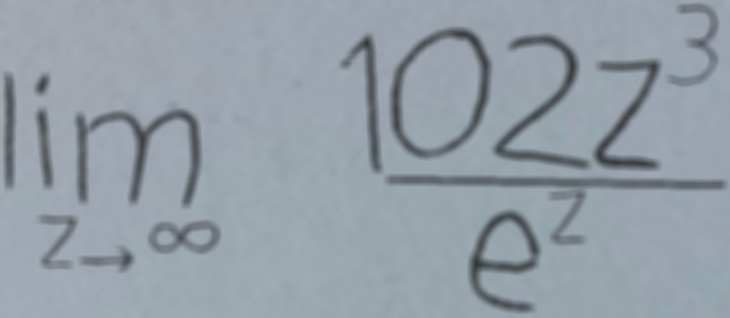 \lim_{z \to \infty} \frac{102z^3}{e^z}